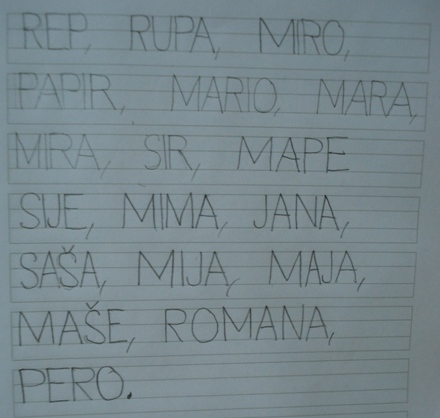 REP, RUPA, MIRO,
PAPIR, MARIO, MARA,
MIRA, SIR, MAPE
SIJE, MIMA, JANA,
SAŠA, MIJA, MAJA,
MAŠE, ROMANA,
PERO.